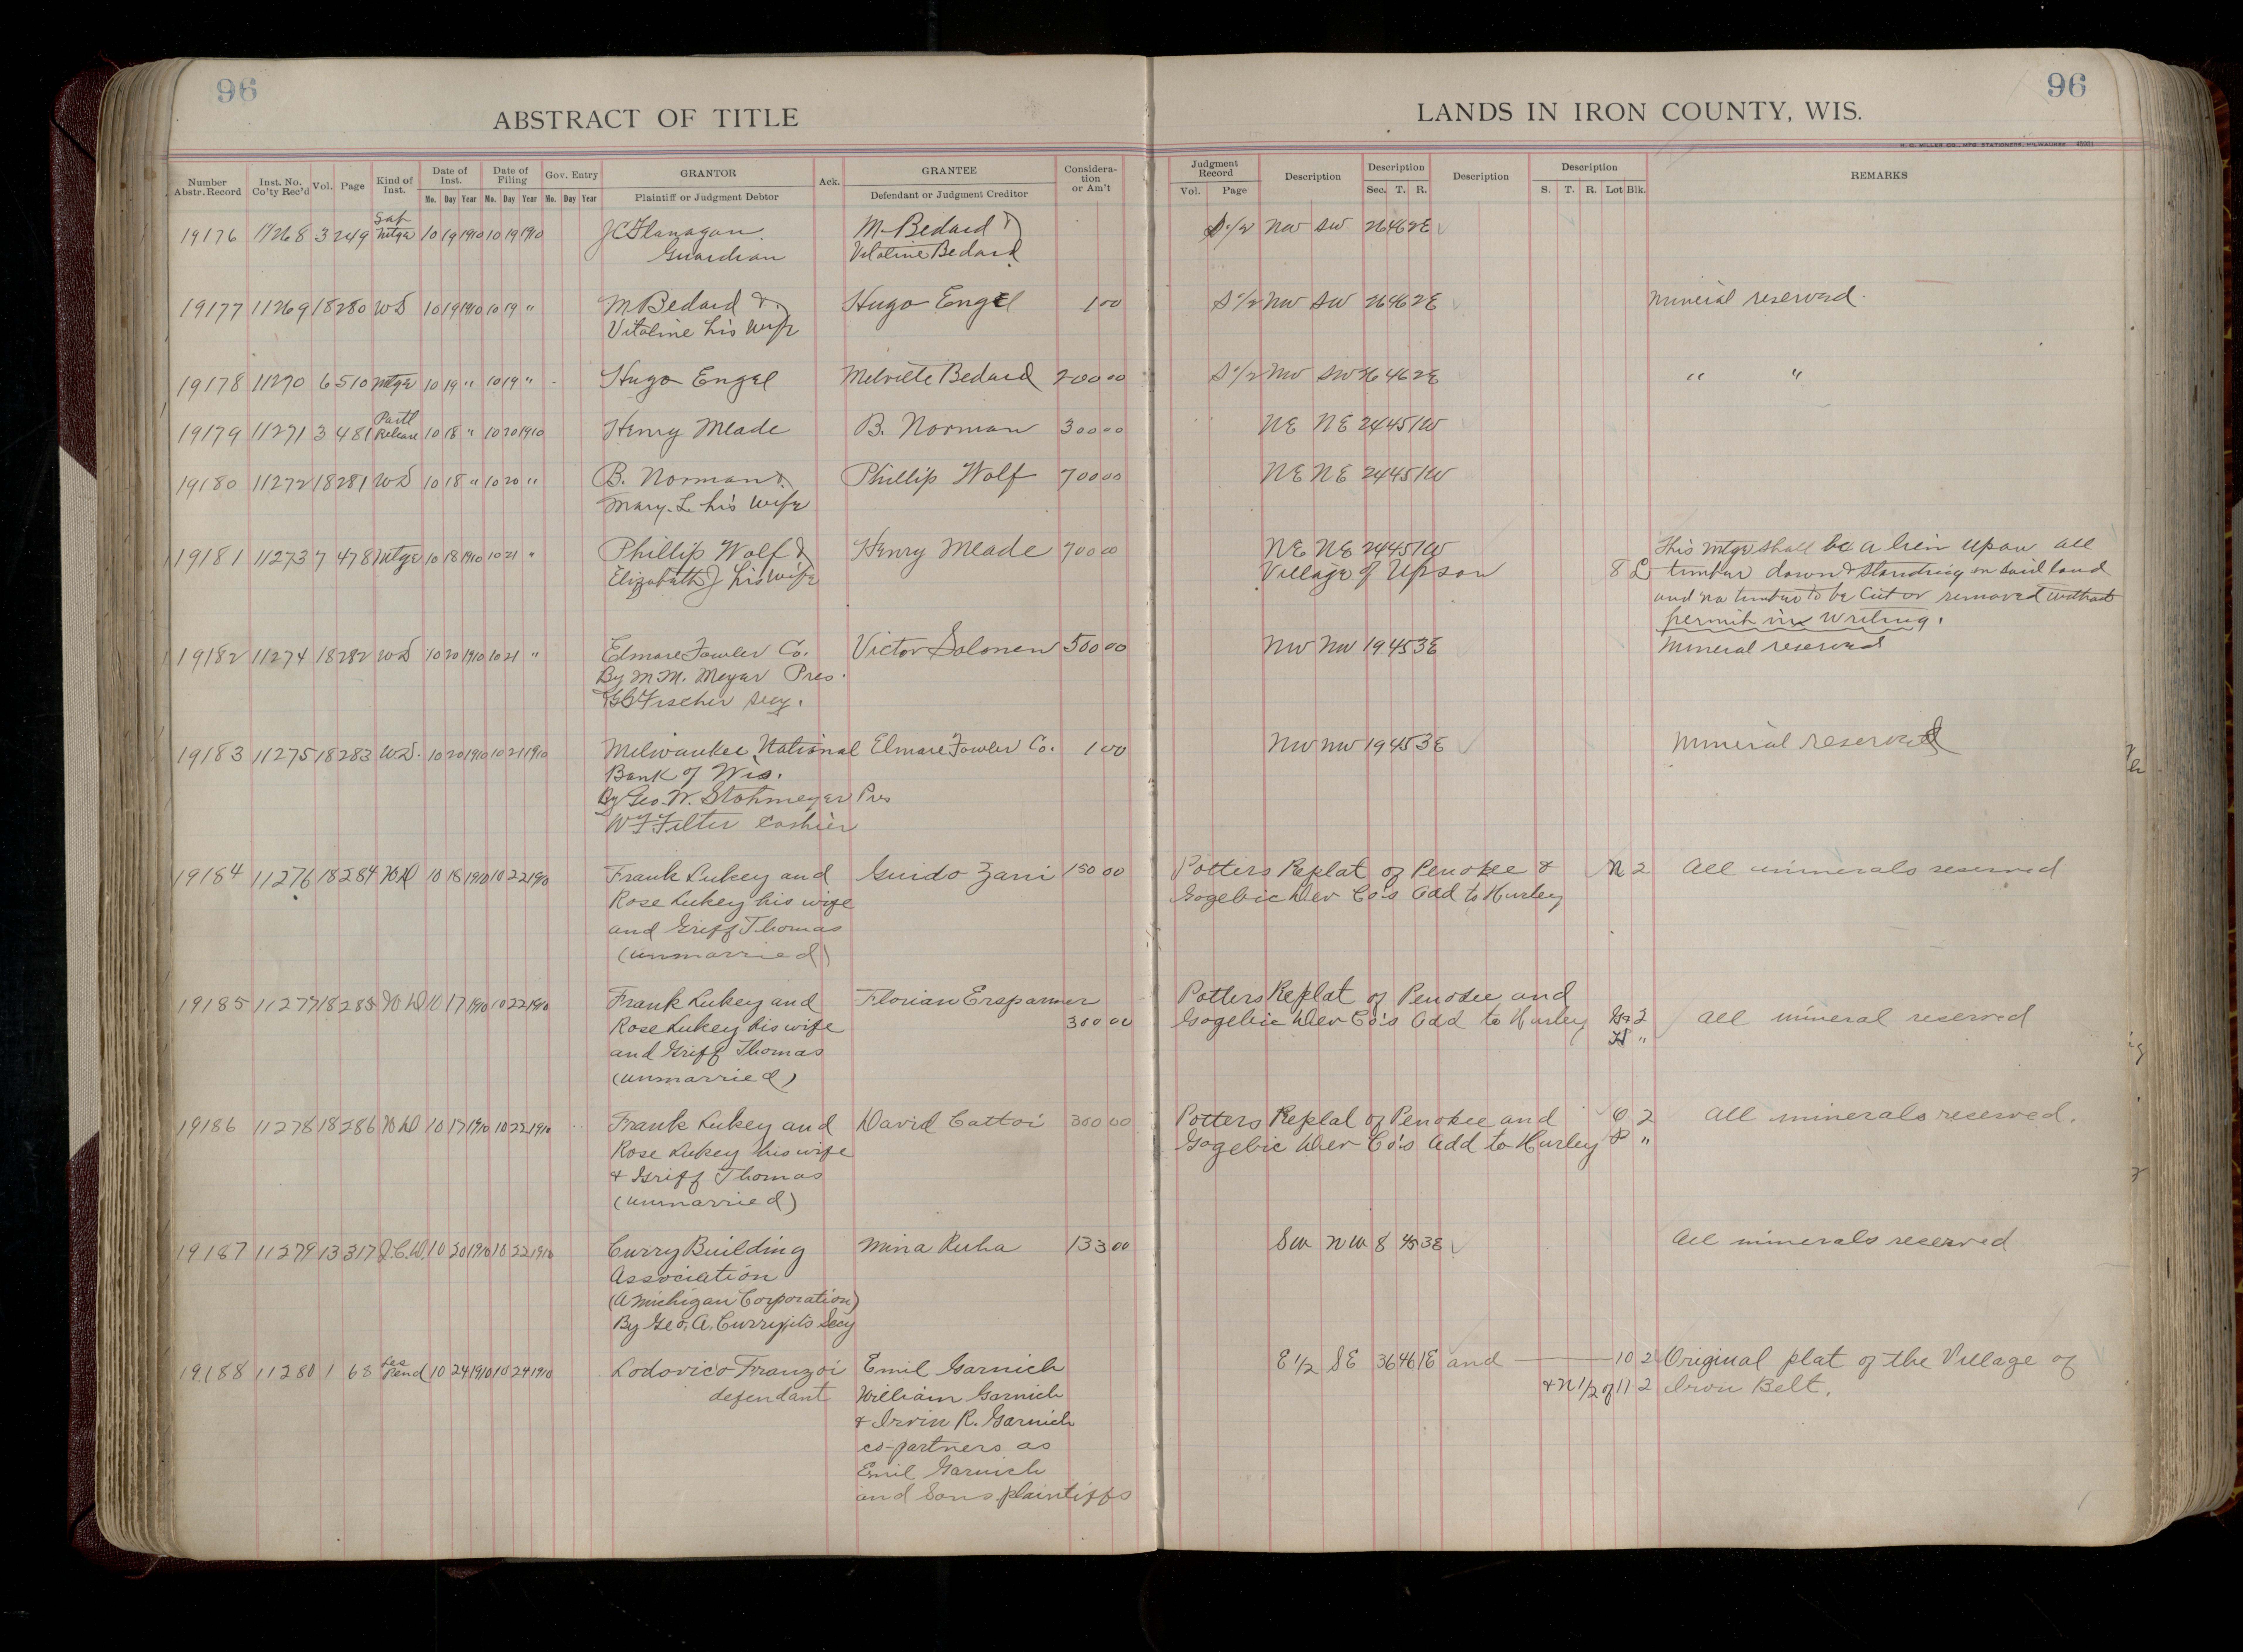 96
96
ABSTRACT OF TITLE
LANDS IN IRON COUNTY, WIS.
H. G. MILLER CO., MFG. STATIONERS, MILWAUKEE
Number Abstr. Record Inst. No. Co'ty Rec'd Vol. Page Kind of Inst. Date of Inst. Mo. Day Year Date of Filing Mo. Day Year Gov. Entry Mo. Day Year GRANTOR Plaintiff or Judgment Debtor Ack. GRANTEE Defendant or Judgment Creditor Consideration or Am't Judgment Record Vol. Page Description Description Sec. T. R. Description Description S. T. R. Lot Blk. REMARKS
19176 11268 3 249 Sat Mtge 10 19 1910 10 19 1910 J C Flanagan M. Bedard & S 1/2 NW SW 26 46 2E
Guardian Vitaline Bedard
19177 11269 18 280 WD 10 19 1910 10 19 " M Bedard & Hugo Engel 1 00 S 1/2 NW SW 26 46 2E Mineral reserved.
Vitaline his wife
19178 11270 6 510 Mtge 10 19 " 10 19 " Hugo Engel Bedard 200 00 S 1/2 NW SW 26 46 2E " "
19179 11271 3 481 Partl Release 10 18 " 10 20 1910 Henry Meade B. Norman 300 00 NE NE 24 45 1W
19180 11272 18 281 WD 10 18 " 10 20 " B. Norman & Phillip Wolf 700 00 NE NE 24 45 1W
Mary L. his wife
19181 11273 7 478 Mtge 10 18 1910 10 21 " Phillip Wolf & Henry Meade 700 00 NE NE 24 45 1W This mtge shall be a lien upon all
Elizabeth J his wife Village of Upson 8 L timber down & standing on said land
and no timber to be cut or removed without
permit in writing.
19182 11274 18 282 WD 10 20 1910 10 21 " Elmore Fowler Co. Victor Solonen 500 00 NW NW 19 45 3E Mineral reserved
By M.M. Meyer Pres.
Fischer Secy.
19183 11275 18 283 W.D. 10 20 1910 10 21 1910 Milwaukee National Elmore Fowler Co. 1 00 NW NW 19 45 3E Mineral reserved
Bank of Wis.
By Geo. W. Strohmeyer Pres
W F Filter Cashier
19184 11276 18 284 WD 10 18 1910 10 22 1910 Frank Lukey and Guido Zani 150 00 Potters Replat of Penokee & N 2 All minerals reserved
Rose Lukey his wife Gogebic Dev Co's Add to Hurley
and Griff Thomas
(unmarried)
19185 11277 18 285 WD 10 17 1910 10 22 1910 Frank Lukey and Florian Ersparmer Potters Replat of Penokee and
Rose Lukey his wife 300 00 Gogebic Dev Co's Add to Hurley G 2 All mineral reserved
and Griff Thomas H "
(unmarried)
19186 11278 18 286 WD 10 17 1910 10 22 1910 Frank Lukey and David Cattoi 300 00 Potters Replat of Penokee and O 2 All minerals reserved.
Rose Lukey his wife Gogebic Dev Co's Add to Hurley P "
& Griff Thomas
(unmarried)
19187 11279 13 317 Q.C.D. 10 20 1910 10 22 1910 Curry Building Mina Ruha 133 00 SW NW 8 45 3E All minerals reserved
Association
(A Michigan Corporation)
By Geo. A. Curry, its Secy
19188 11280 1 68 Les Pend 10 24 1910 10 24 1910 Lodovico Franzoi Emil Garnich E 1/2 SE 36 46 1E and 10 2 Original plat of the Village of
defendant William Garnich & N 1/2 of 11 2 Iron Belt.
& Irvin R. Garnich
co-partners as
Emil Garnich
and Sons plaintiffs